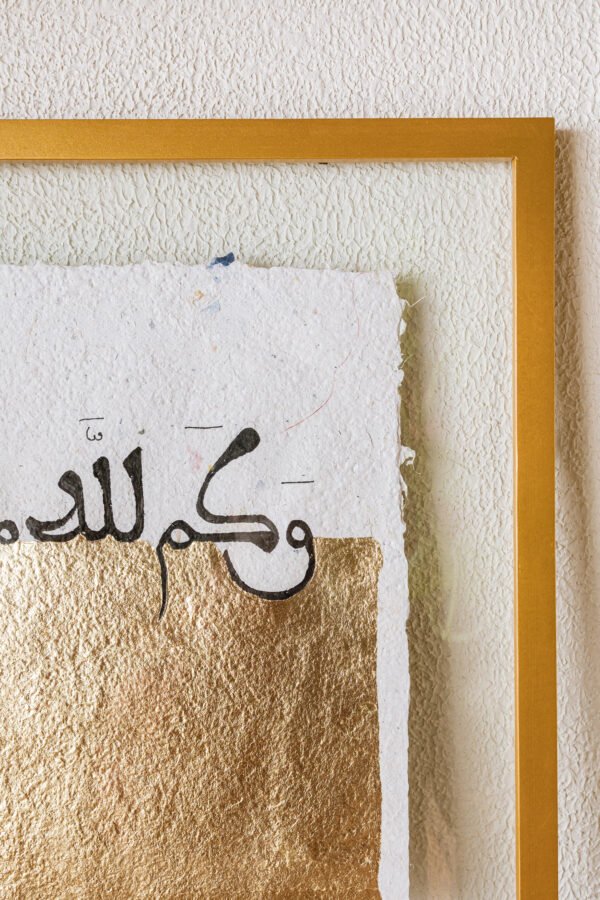 وَكَم لِلَّهِ